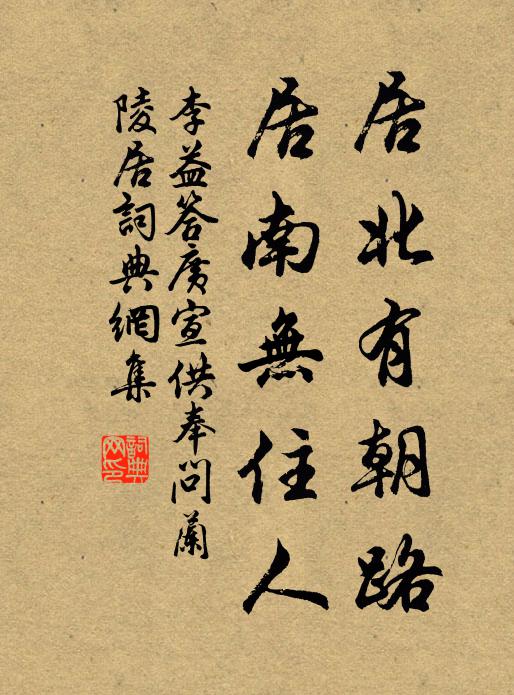 居北有朝路
居南無住人
李益答廣宣供奉問蘭
陵居詞典網集
詞典网印